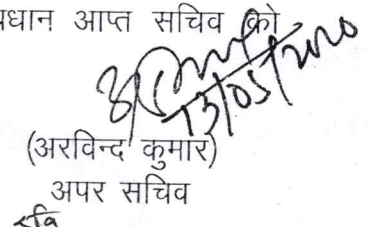 प्रधान आप्त सचिव को
13/05/2020
(अरविन्द कुमार)
अपर सचिव